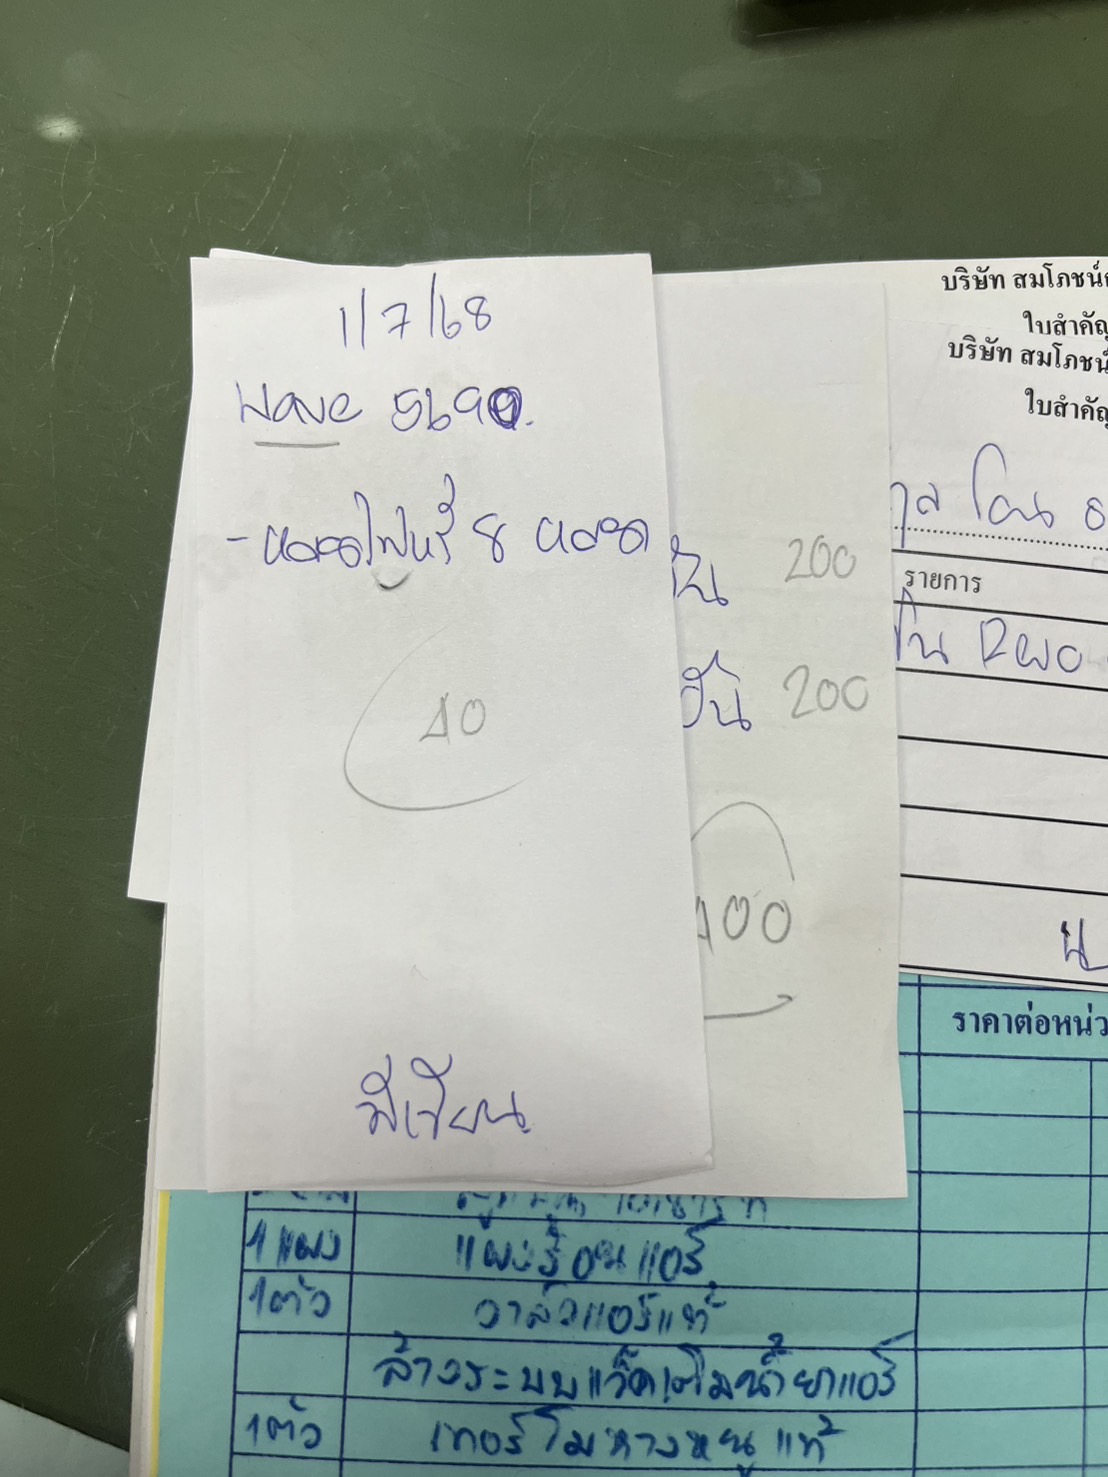 1/7/68
Wave 5690.
- หลอดไฟหรี่ 8 หลอด
40
มีเขียน
200
200
400
บริษัท สมโภชน์
ใบสำคัญ
บริษัท สมโภชน์
ใบสำคัญ
โดน
รายการ
ราคาต่อหน่ว
1 แผง แผงร้อนแอร์
1 ตัว วาล์วแอร์แท้
ล้างระบบแว็คเติมน้ำยาแอร์
1 ตัว เทอร์โมหางหนูแท้